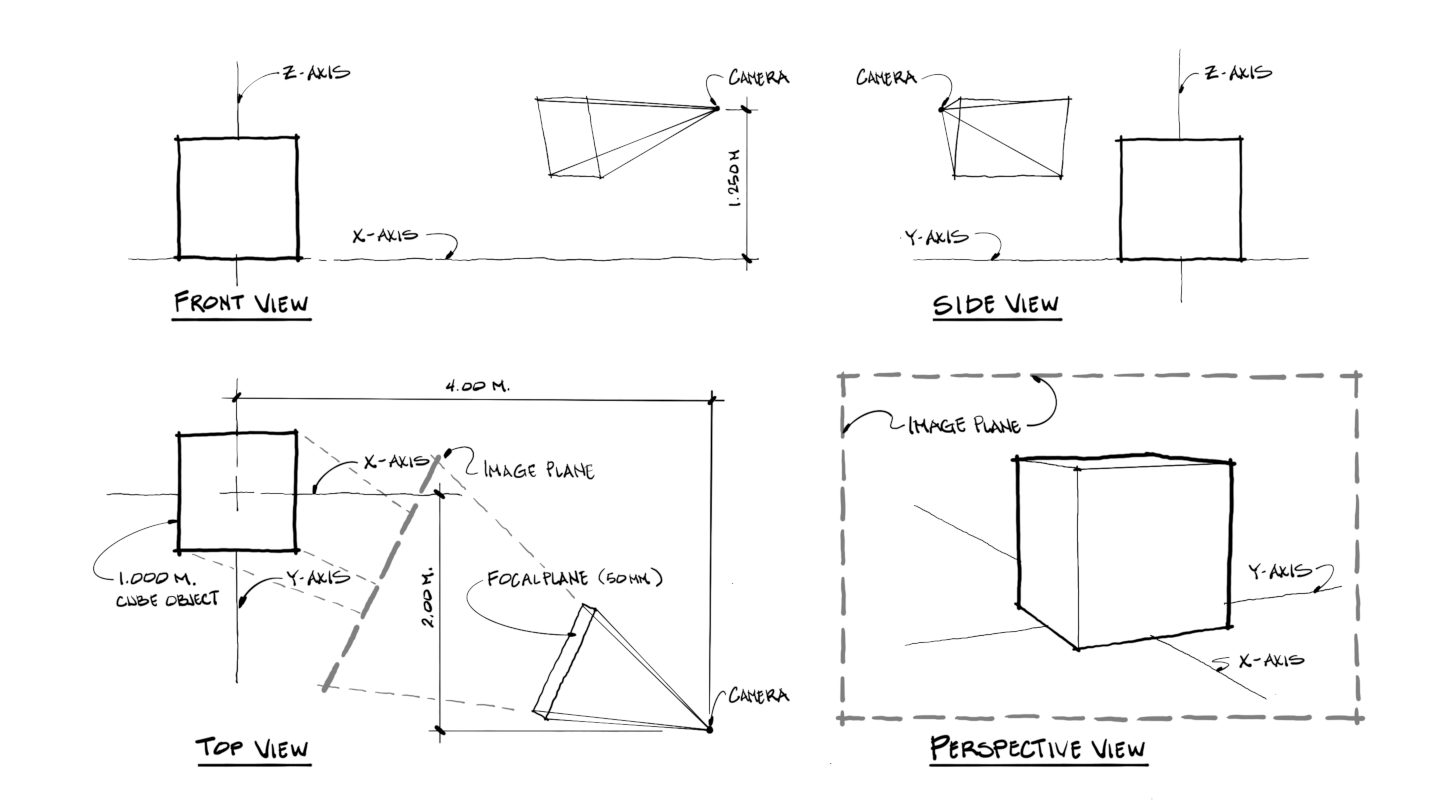 Z-AXIS
CAMERA
1.250 M
X-AXIS
FRONT VIEW
CAMERA
Z-AXIS
Y-AXIS
SIDE VIEW
4.00 M.
X-AXIS
IMAGE PLANE
1.000 M.
CUBE OBJECT
Y-AXIS
2.00 M.
FOCALPLANE (50MM.)
CAMERA
TOP VIEW
IMAGE PLANE
Y-AXIS
X-AXIS
PERSPECTIVE VIEW